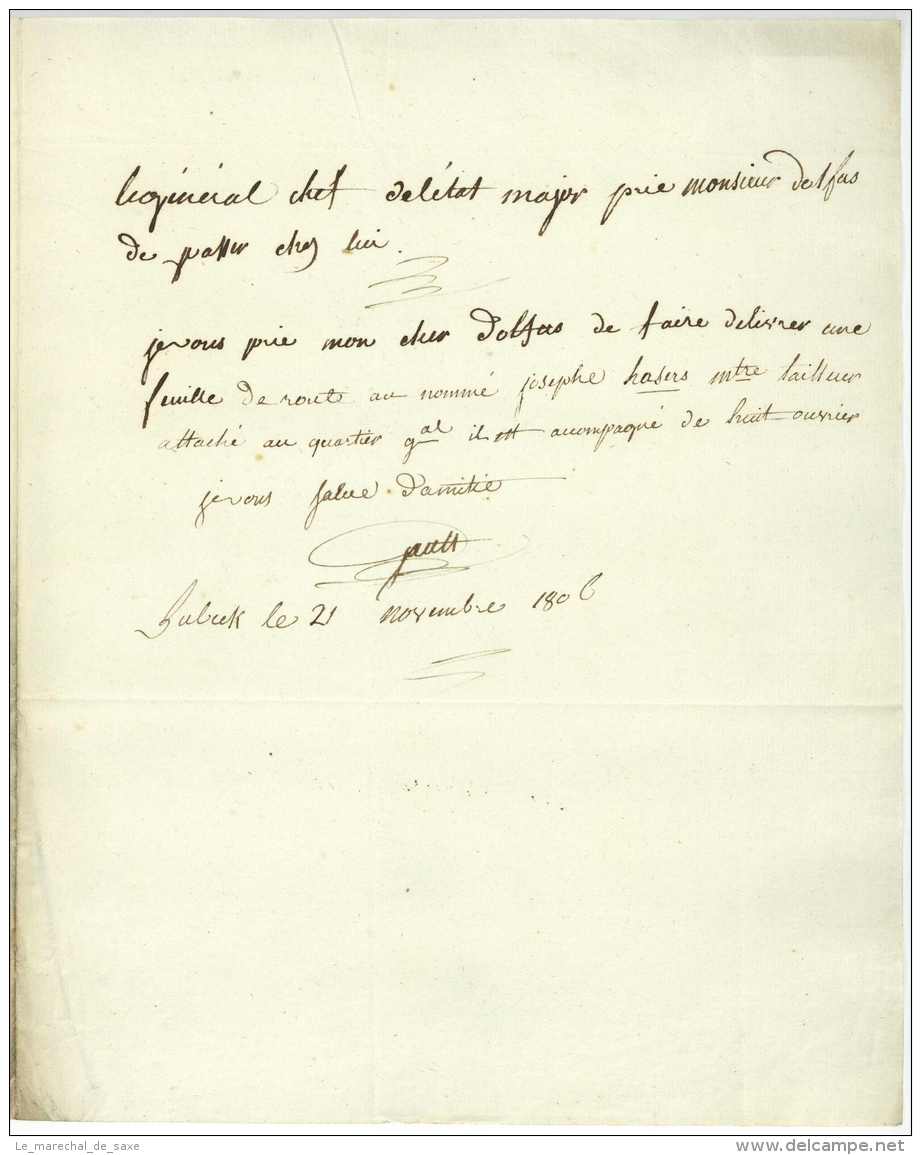 le général chef de l'état major prie monsieur dolfus
de passer chez lui
je vous prie mon cher Dolfus de faire delivrer une
feuille de route au nommé josephe hasers mtre tailleur
attaché au quartier gal il est accompagné de huit ouvrier
je vous salue d'amitié
Lubeck le 21 novembre 1806
Le_marechal_de_saxe
www.delcampe.net